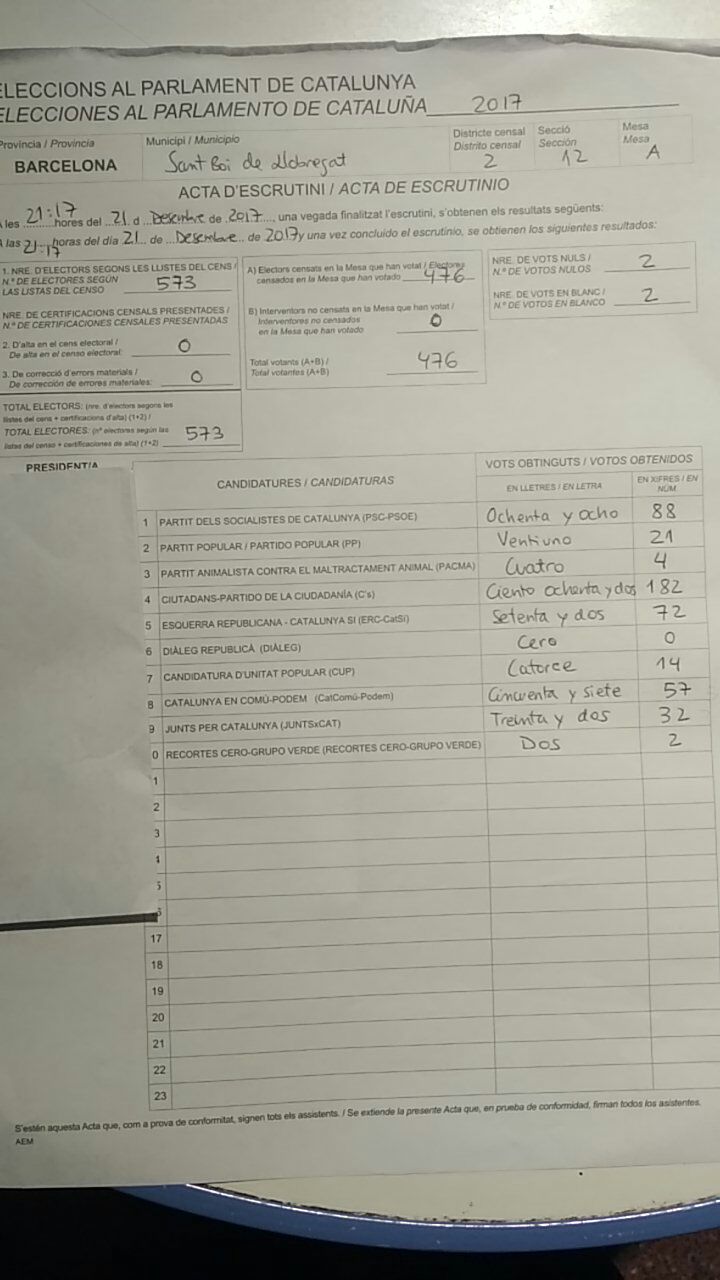 ELECCIONS AL PARLAMENT DE CATALUNYA
ELECCIONES AL PARLAMENTO DE CATALUÑA 2017
Provincia / Provincia
BARCELONA
Municipi / Municipio
Sant Boi de Llobregat
Districte censal
Distrito censal
2
Secció
Sección
12
Mesa
Mesa
A
ACTA D'ESCRUTINI / ACTA DE ESCRUTINIO
A les 21:17 hores del 21 d Desembre de 2017, una vegada finalitzat l'escrutini, s'obtenen els resultats següents:
A las 21:17 horas del día 21 de Desembre de 2017 y una vez concluido el escrutinio, se obtienen los siguientes resultados:
1. NRE. D'ELECTORS SEGONS LES LLISTES DEL CENS /
N.º DE ELECTORES SEGÚN
LAS LISTAS DEL CENSO 573
NRE. DE CERTIFICACIONS CENSALS PRESENTADES /
N.º DE CERTIFICACIONES CENSALES PRESENTADAS
2. D'alta en el cens electoral /
De alta en el censo electoral: 0
3. De correcció d'errors materials /
De corrección de errores materiales: 0
TOTAL ELECTORS: (nre. d'electors segons les
llistes del cens + certificacions d'alta) (1+2) /
TOTAL ELECTORES: (nº electores según las
listas del censo + certificaciones de alta) (1+2) 573
A) Electors censats en la Mesa que han votat / Electores
censados en la Mesa que han votado 476
B) Interventors no censats en la Mesa que han votat /
Interventores no censados
en la Mesa que han votado 0
Total votants (A+B) /
Total votantes (A+B) 476
NRE. DE VOTS NULS /
N.º DE VOTOS NULOS 2
NRE. DE VOTS EN BLANC /
N.º DE VOTOS EN BLANCO 2
PRESIDENT/A
CANDIDATURES / CANDIDATURAS
VOTS OBTINGUTS / VOTOS OBTENIDOS
EN LLETRES / EN LETRA
EN XIFRES / EN NÚM.
1 PARTIT DELS SOCIALISTES DE CATALUNYA (PSC-PSOE) Ochenta y ocho 88
2 PARTIT POPULAR / PARTIDO POPULAR (PP) Ventiuno 21
3 PARTIT ANIMALISTA CONTRA EL MALTRACTAMENT ANIMAL (PACMA) Cuatro 4
4 CIUTADANS-PARTIDO DE LA CIUDADANÍA (C's) Ciento ochenta y dos 182
5 ESQUERRA REPUBLICANA - CATALUNYA SÍ (ERC-CatSí) Setenta y dos 72
6 DIÀLEG REPUBLICÀ (DIÀLEG) Cero 0
7 CANDIDATURA D'UNITAT POPULAR (CUP) Catorce 14
8 CATALUNYA EN COMÚ-PODEM (CatComú-Podem) Cincuenta y siete 57
9 JUNTS PER CATALUNYA (JUNTSxCAT) Treinta y dos 32
0 RECORTES CERO-GRUPO VERDE (RECORTES CERO-GRUPO VERDE) Dos 2
1
2
3
4
5
6
17
18
19
20
21
22
23
S'estén aquesta Acta que, com a prova de conformitat, signen tots els assistents. / Se extiende la presente Acta que, en prueba de conformidad, firman todos los asistentes.
AEM